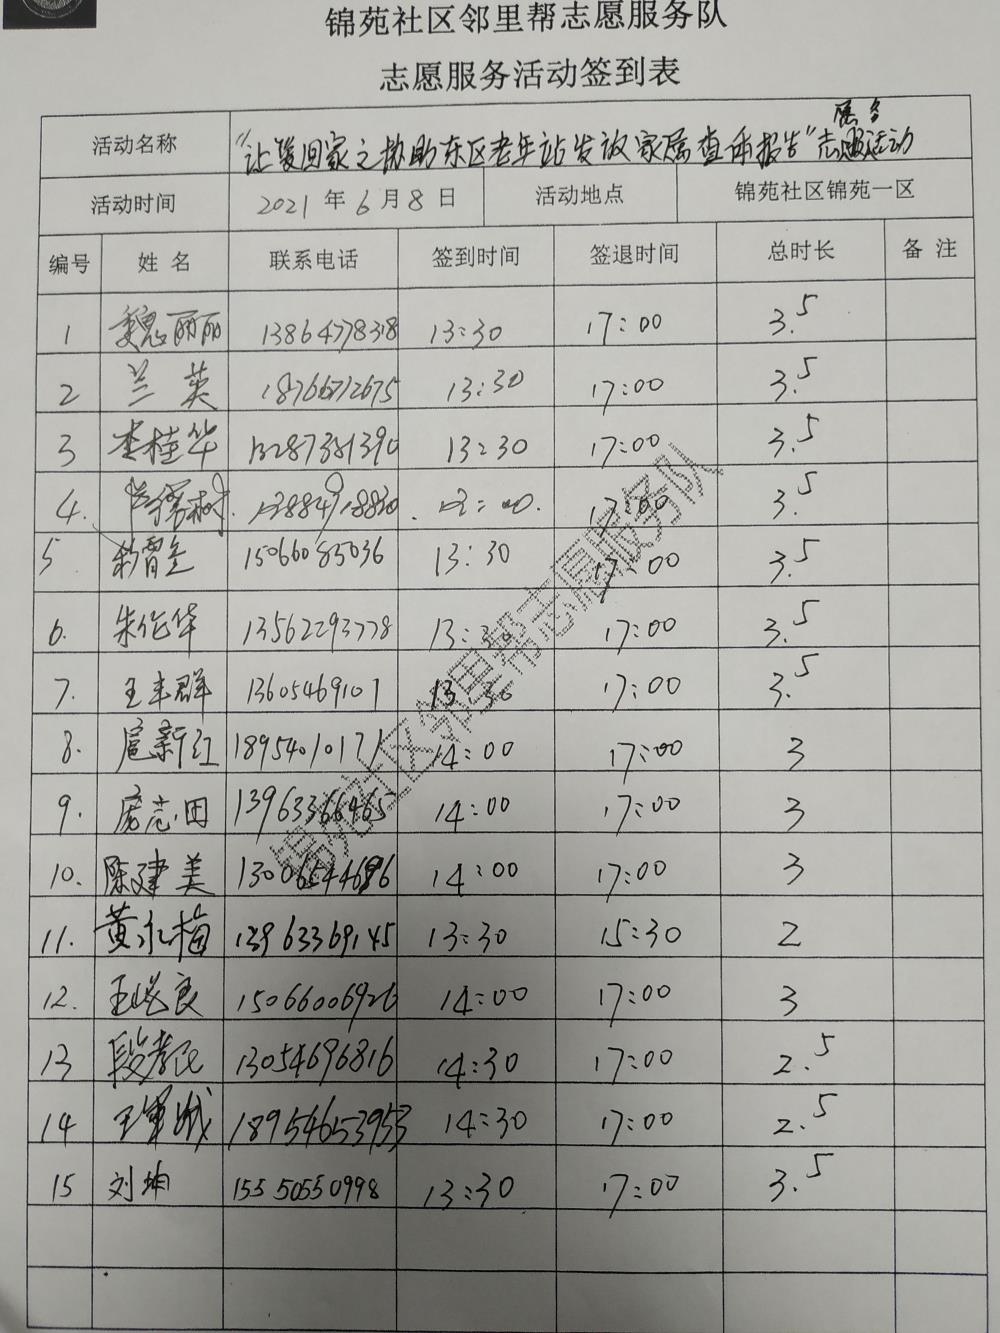 锦苑社区邻里帮志愿服务队
志愿服务活动签到表
活动名称 "让爱回家之协助东区老年站发放家属查体报告"志愿服务活动
活动时间 2021 年 6 月 8 日 活动地点 锦苑社区锦苑一区
编号 姓 名 联系电话 签到时间 签退时间 总时长 备 注
1 魏丽丽 13864778318 13:30 17:00 3.5
2 兰英 18766712675 13:30 17:00 3.5
3 李桂华 13287381390 13:30 17:00 3.5
4. 17:00 3.5
5 15066085036 13:30 17:00 3.5
6. 朱作华 13562293778 13:30 17:00 3.5
7. 王丰群 13605469101 13:30 17:00 3.5
8. 扈新红 18954010171 14:00 17:00 3
9. 扈志田 13963366465 14:00 17:00 3
10. 陈建美 14:00 17:00 3
11. 黄永梅 13963369145 13:30 15:30 2
12. 王岷良 15066006926 14:00 17:00 3
13 段孝民 13054696816 14:30 17:00 2.5
14 王军城 18954653953 14:30 17:00 2.5
15 刘坤 15550550998 13:30 17:00 3.5
锦苑社区邻里帮志愿服务队